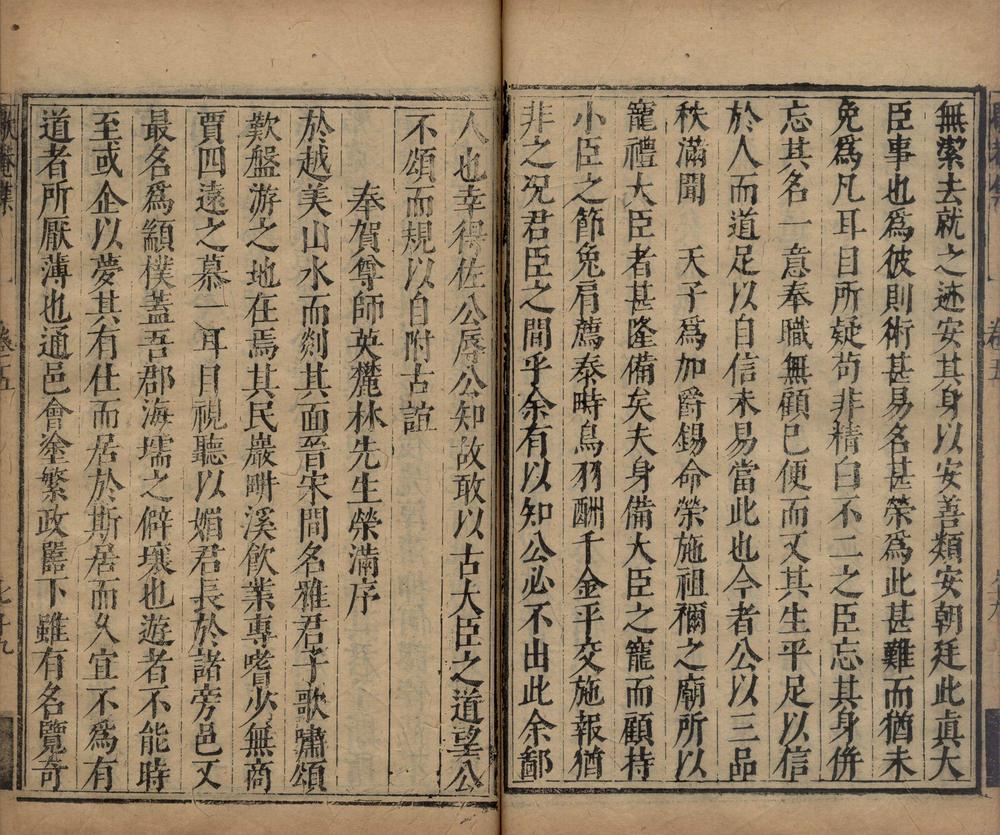 無潔去就之迹安其身以安善類安朝廷此眞大
臣事也爲彼則術甚易名甚榮爲此甚難而猶未
免爲凡耳目所疑苟非精白不二之臣忘其身併
忘其名一意奉職無顧已便而又其生平足以信
於人而道足以自信未易當此也今者公以三品
秩滿聞　天子爲加爵錫命榮施祖禰之廟所以
寵禮大臣者甚隆備矣夫身備大臣之寵而顧持
小臣之節兔肩薦秦時鳥羽酬千金平交施報猶
非之况君臣之間乎余有以知公必不出此余鄙
人也幸得佐公辱公知故敢以古大臣之道望公
不頌而規以自附古誼
奉賀尊師英麓林先生榮滿序
於越美山水而剡其面晉宋間名雅君子歌嘯頌
歎盤游之地在焉其民巖畊溪飲業專嗜少無商
賈四遠之慕一耳目視聽以媚君長於諸旁邑又
最名爲顓樸蓋吾郡海壖之僻壤也遊者不能時
至或企以夢其有仕而居於斯居而久宜不爲有
道者所厭薄也通邑會塗繁政嚚下雖有名覽奇
歇菴集
卷之五